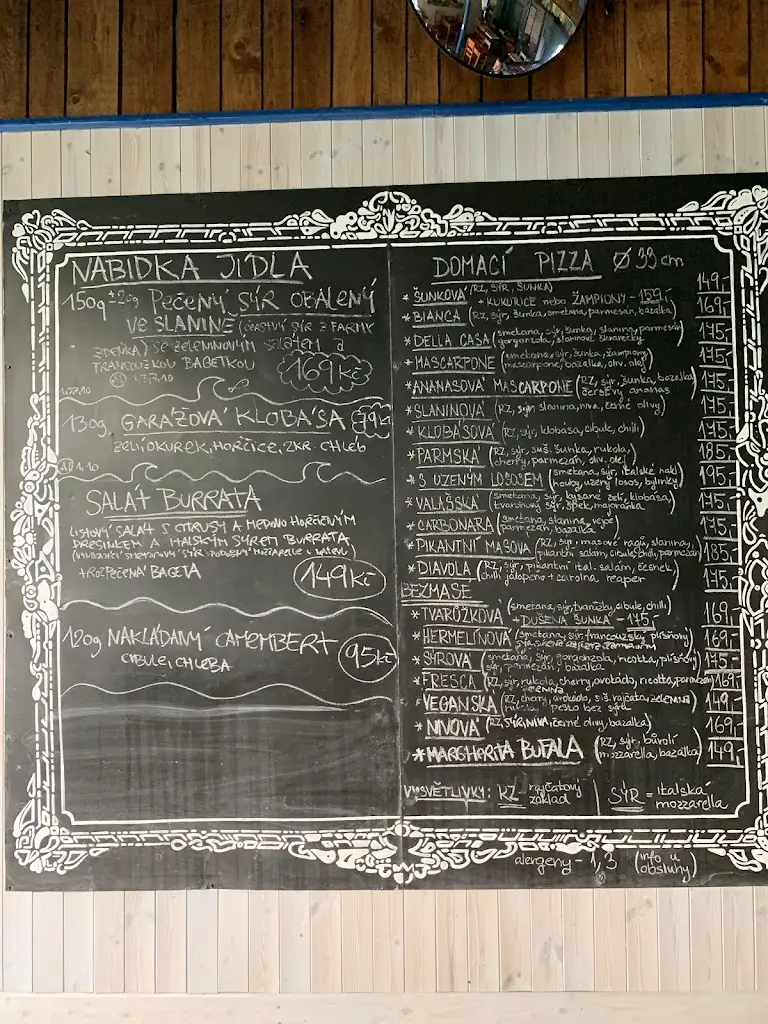 NABÍDKA JÍDLA
150g PEČENÝ SÝR OBALENÝ
VE SLANINĚ (ČERSTVÝ SÝR Z FARMY
ZDEŇKA) SE ZELENINOVÝM SALÁTEM A
FRANCOUZKOU BAGETKOU
169 Kč
A 1,7,10
130g GARÁŽOVÁ KLOBÁSA 79 Kč
ZELÍ, OKUREK, HOŘČICE, ZKR. CHLÉB
A 1,10
SALÁT BURRATA
LISTOVÝ SALÁT S CITRUSY A MEDOVO HOŘČIČNÝM
DRESINKEM A ITALSKÝM SÝREM BURRATA
+ ROZPEČENÁ BAGETA 149 Kč
120g NAKLÁDANÝ CAMEMBERT
CIBULE, CHLEBA 95 Kč
DOMACÍ PIZZA Ø 33 cm
* ŠUNKOVÁ (RZ, SÝR, ŠUNKA) 149,-
+ KUKUŘICE nebo ŽAMPIONY - 159,-
* BIANCA (RZ, sýr, šunka, smetana, parmesán, bazalka) 169,-
* DELLA CASA (smetana, sýr, šunka, slanina, parmesán, 175,-
gorgonzola,
* MASCARPONE (smetana, sýr, šunka, žampiony, 175,-
mascarpone, bazalka, oliv. olej)
* ANANASOVÁ MASCARPONE (RZ, sýr, šunka, bazalka 175,-
čerstvý ananas
* SLANINOVÁ (RZ, sýr, slanina, niva, černé olivy) 175,-
* KLOBÁSOVÁ (RZ, sýr, klobása, cibule, chilli) 175,-
* PARMSKÁ (RZ, sýr, suš. šunka, rukola, 185,-
cherry, parmezán, oliv. olej)
* S UZENÝM LOSOSEM (smetana, sýr, 195,-
houby, uzený losos, bylinky)
* VALAŠSKÁ (smetana, sýr, kysané zelí, klobása, 175,-
tvarůžkový sýr, špek, majoránka)
* CARBONARA (smetana, slanina, vejce, 175,-
parmezán, bazalka)
* PIKANTNÍ MASOVÁ (RZ, sýr, masové ragú, slanina, 185,-
pikantní salám, cibule, chilli, parmezán)
* DIAVOLA (RZ, sýr, pikantní ital. salám, česnek, 175,-
chilli jalopeño + carolina reaper)
BEZMASÉ
* TVARŮŽKOVÁ (smetana, sýr, tvarůžky, cibule, chilli) 169,-
+ DUŠENÁ ŠUNKA - 175,-
* HERMELÍNOVÁ (smetana, sýr, francouzský plísňový 169,-
* SÝROVÁ (smetana, sýr, gorgonzola, ricotta, plísňový 175,-
sýr, parmezán, bazalka)
* FRESCA (RZ, sýr, rukola, cherry, avokádo, ricotta, parmezán) 169,-
* VEGANSKÁ (RZ, cherry, avokádo, suš. rajčata, zelenina, 149,-
rukola, pesto bez sýru)
* NIVOVÁ (RZ, SÝR, NIVA, černé olivy, bazalka) 169,-
* MARGHERITA BUFALA (RZ, sýr, bůvolí 149,-
mozzarella, bazalka)
VYSVĚTLIVKY: RZ - rajčatový základ | SÝR = italská mozzarella
alergeny - 1,3 (info u obsluhy)